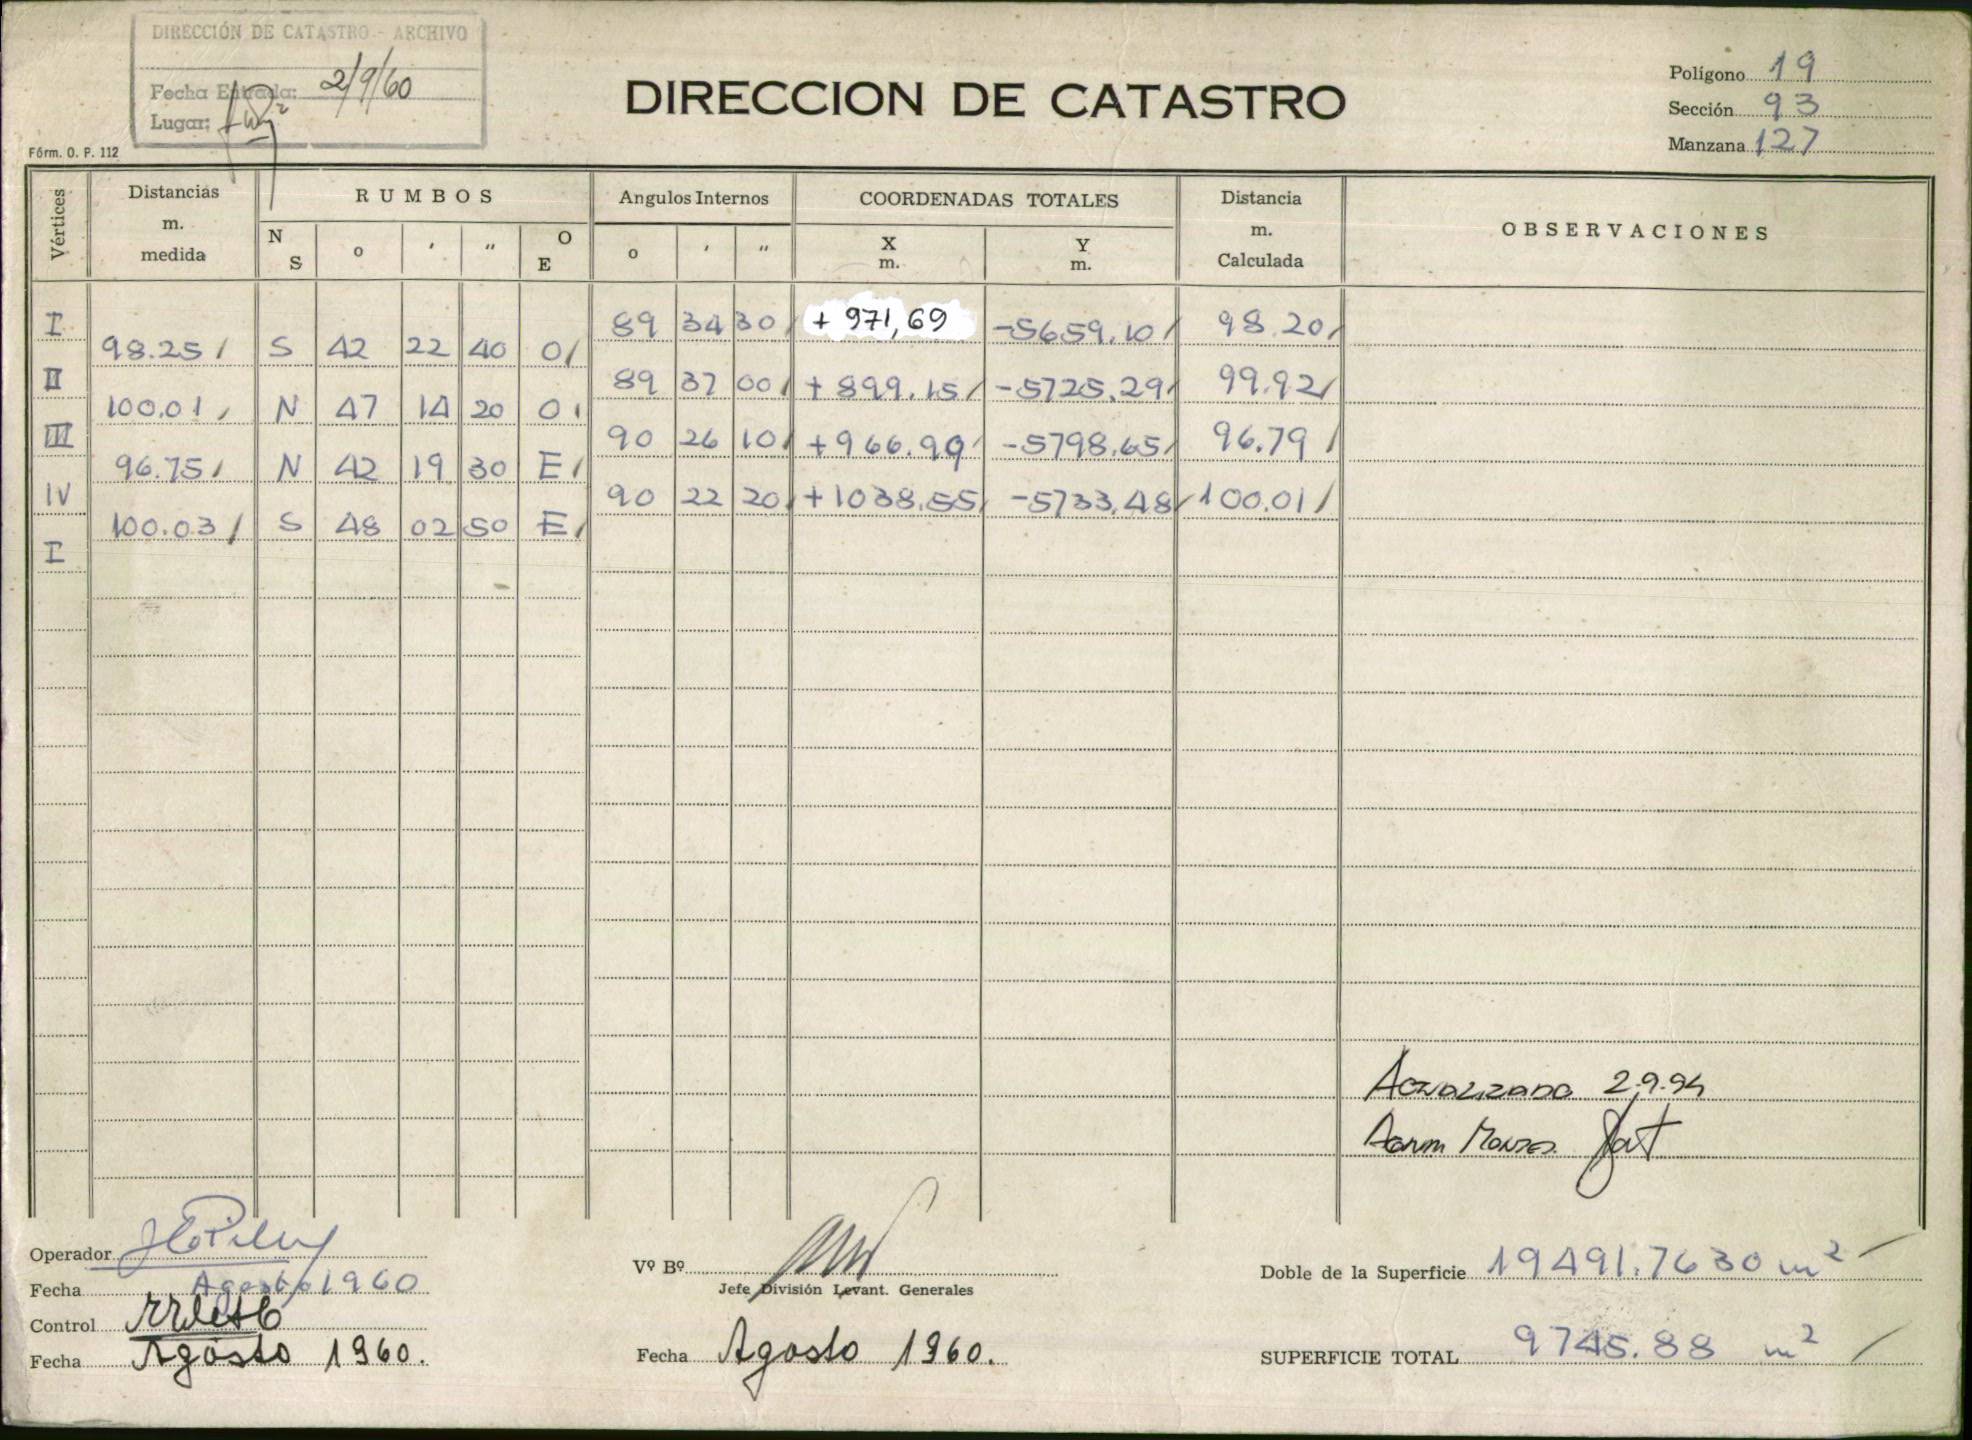 DIRECCIÓN DE CATASTRO - ARCHIVO
Fecha Entrada: 2/9/60
Lugar:
Fórm. O. P. 112
DIRECCION DE CATASTRO
Polígono 19
Sección 93
Manzana 127
Vértices
Distancias m. medida
RUMBOS
N S ° ' " O E
Angulos Internos
° ' "
COORDENADAS TOTALES
X m. Y m.
Distancia m. Calculada
OBSERVACIONES
I 89 34 30 + 971,69 -5659.10 98.20
98.25 S 42 22 40 O
II 89 37 00 +899.15 -5725.29 99.92
100.01 N 47 14 20 O
III 90 26 10 +966.99 -5798.65 96.79
96.75 N 42 19 30 E
IV 90 22 20 +1038.55 -5733.48 100.01
100.03 S 48 02 50 E
I
Actualizado 2.9.94
Operador
Fecha Agosto 1960
Control
Fecha Agosto 1960.
Vº Bº
Jefe División Levant. Generales
Fecha Agosto 1960.
Doble de la Superficie 19491.7630 m²
SUPERFICIE TOTAL 9745.88 m²